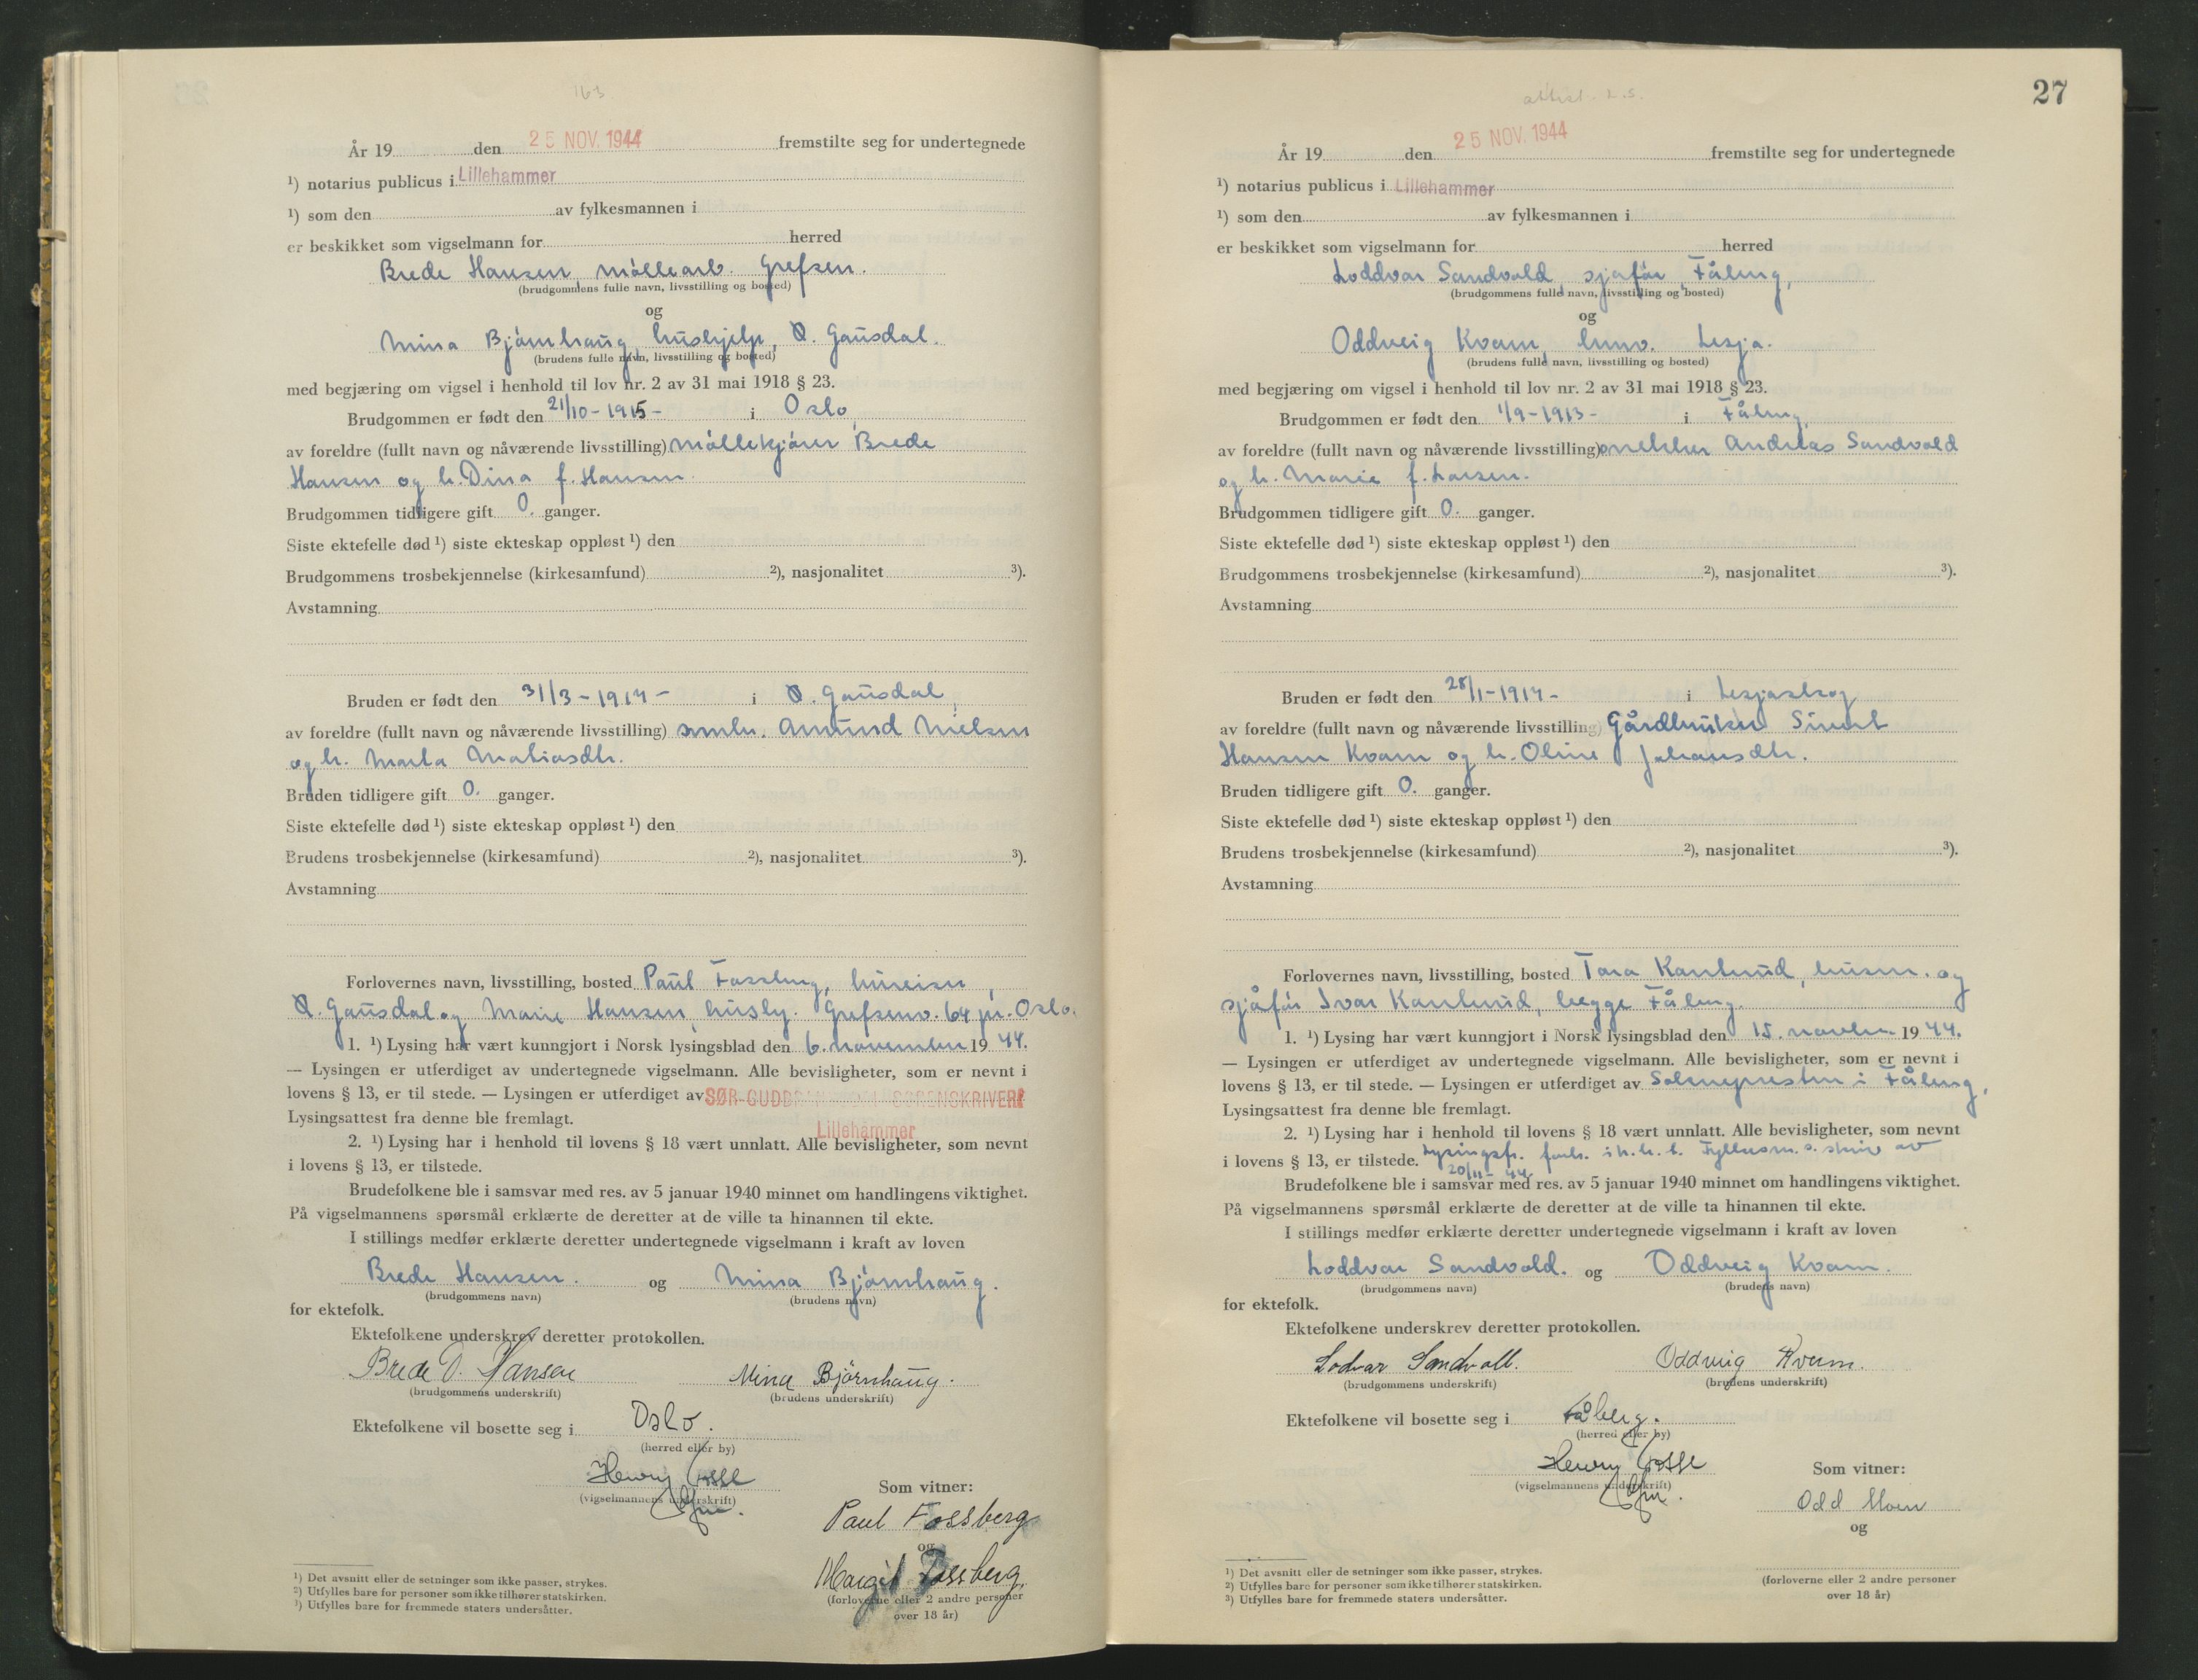 163
År 19 den 25 NOV. 1944 fremstilte seg for undertegnede
¹) notarius publicus i Lillehammer
¹) som den av fylkesmannen i
er beskikket som vigselmann for herred
Brede Hansen, møllearb. Grefsen.
(brudgommens fulle navn, livsstilling og bosted)
og
Mina Bjørnhaug, hushjelp, Ø. Gausdal.
(brudens fulle navn, livsstilling og bosted)
med begjæring om vigsel i henhold til lov nr. 2 av 31 mai 1918 § 23.
Brudgommen er født den 21/10-1915- i Oslo,
av foreldre (fullt navn og nåværende livsstilling) møllekjører Brede
Hansen og h. Dina f. Hansen
Brudgommen tidligere gift 0. ganger.
Siste ektefelle død ¹) siste ekteskap oppløst ¹) den
Brudgommens trosbekjennelse (kirkesamfund) ²), nasjonalitet ³).
Avstamning
Bruden er født den 31/3-1914- i Ø. Gausdal,
av foreldre (fullt navn og nåværende livsstilling) småbr. Amund Nielsen
og h. Marta Matiasdtr.
Bruden tidligere gift 0. ganger.
Siste ektefelle død ¹) siste ekteskap oppløst ¹) den
Brudens trosbekjennelse (kirkesamfund) ²), nasjonalitet ³).
Avstamning
Forlovernes navn, livsstilling, bosted Paul Fossberg, bureiser,
Ø. Gausdal og Marie Hansen, husby. Grefsenv. 64 pr. Oslo.
1. ¹) Lysing har vært kunngjort i Norsk lysingsblad den 6. november 19 44.
— Lysingen er utferdiget av undertegnede vigselmann. Alle bevisligheter, som er nevnt i
lovens § 13, er til stede. — Lysingen er utferdiget av SØR-GUDBRANDSDAL SORENSKRIVERI
Lysingsattest fra denne ble fremlagt. Lillehammer
2. ¹) Lysing har i henhold til lovens § 18 vært unnlatt. Alle bevisligheter, som nevnt
i lovens § 13, er tilstede.
Brudefolkene ble i samsvar med res. av 5 januar 1940 minnet om handlingens viktighet.
På vigselmannens spørsmål erklærte de deretter at de ville ta hinannen til ekte.
I stillings medfør erklærte deretter undertegnede vigselmann i kraft av loven
Brede Hansen. og Mina Bjørnhaug.
(brudgommens navn) (brudens navn)
for ektefolk.
Ektefolkene underskrev deretter protokollen.
Brede O. Hansen Mina Bjørnhaug.
(brudgommens underskrift) (brudens underskrift)
Ektefolkene vil bosette seg i Oslo.
(herred eller by)
Henry
(vigselmannens underskrift)
Som vitner:
Paul Fossberg
og
Margit Fossberg.
(forloverne eller 2 andre personer
over 18 år)
¹) Det avsnitt eller de setninger som ikke passer, strykes.
²) Utfylles bare for personer som ikke tilhører statskirken.
³) Utfylles bare for fremmede staters undersåtter.
27
attest. L.S.
År 19 den 25 NOV. 1944 fremstilte seg for undertegnede
¹) notarius publicus i Lillehammer
¹) som den av fylkesmannen i
er beskikket som vigselmann for herred
Loddvar Sandvold, sjåfør, Fåberg,
(brudgommens fulle navn, livsstilling og bosted)
og
Oddveig Kvam, hmv. Lesja.
(brudens fulle navn, livsstilling og bosted)
med begjæring om vigsel i henhold til lov nr. 2 av 31 mai 1918 § 23.
Brudgommen er født den 1/9-1913- i Fåberg,
av foreldre (fullt navn og nåværende livsstilling) snekker Andreas Sandvold
og h. Marie f. Larsen.
Brudgommen tidligere gift 0. ganger.
Siste ektefelle død ¹) siste ekteskap oppløst ¹) den
Brudgommens trosbekjennelse (kirkesamfund) ²), nasjonalitet ³).
Avstamning
Bruden er født den 28/1-1914- i Lesjaskog
av foreldre (fullt navn og nåværende livsstilling) Gårdbruker Sivert
Hansen Kvam og h. Oline Johansdtr.
Bruden tidligere gift 0. ganger.
Siste ektefelle død ¹) siste ekteskap oppløst ¹) den
Brudens trosbekjennelse (kirkesamfund) ²), nasjonalitet ³).
Avstamning
Forlovernes navn, livsstilling, bosted Tora Kanlmud, husm. og
sjåfør Ivar Kanlmud, begge Fåberg.
1. ¹) Lysing har vært kunngjort i Norsk lysingsblad den 15. novbr. 19 44.
— Lysingen er utferdiget av undertegnede vigselmann. Alle bevisligheter, som er nevnt i
lovens § 13, er til stede. — Lysingen er utferdiget av Soknepresten i Fåberg,
Lysingsattest fra denne ble fremlagt.
2. ¹) Lysing har i henhold til lovens § 18 vært unnlatt. Alle bevisligheter, som nevnt
i lovens § 13, er tilstede. Lysingsfr. fork. i h. h. t. Fylkesm. s. skriv av
20/11-44
Brudefolkene ble i samsvar med res. av 5 januar 1940 minnet om handlingens viktighet.
På vigselmannens spørsmål erklærte de deretter at de ville ta hinannen til ekte.
I stillings medfør erklærte deretter undertegnede vigselmann i kraft av loven
Loddvar Sandvold. og Oddveig Kvam.
(brudgommens navn) (brudens navn)
for ektefolk.
Ektefolkene underskrev deretter protokollen.
Lodvar Sandvoll. Oddveig Kvam.
(brudgommens underskrift) (brudens underskrift)
Ektefolkene vil bosette seg i Fåberg.
(herred eller by)
Henry
(vigselmannens underskrift)
Som vitner:
Odd Moen
og
(forloverne eller 2 andre personer
over 18 år)
¹) Det avsnitt eller de setninger som ikke passer, strykes.
²) Utfylles bare for personer som ikke tilhører statskirken.
³) Utfylles bare for fremmede staters undersåtter.